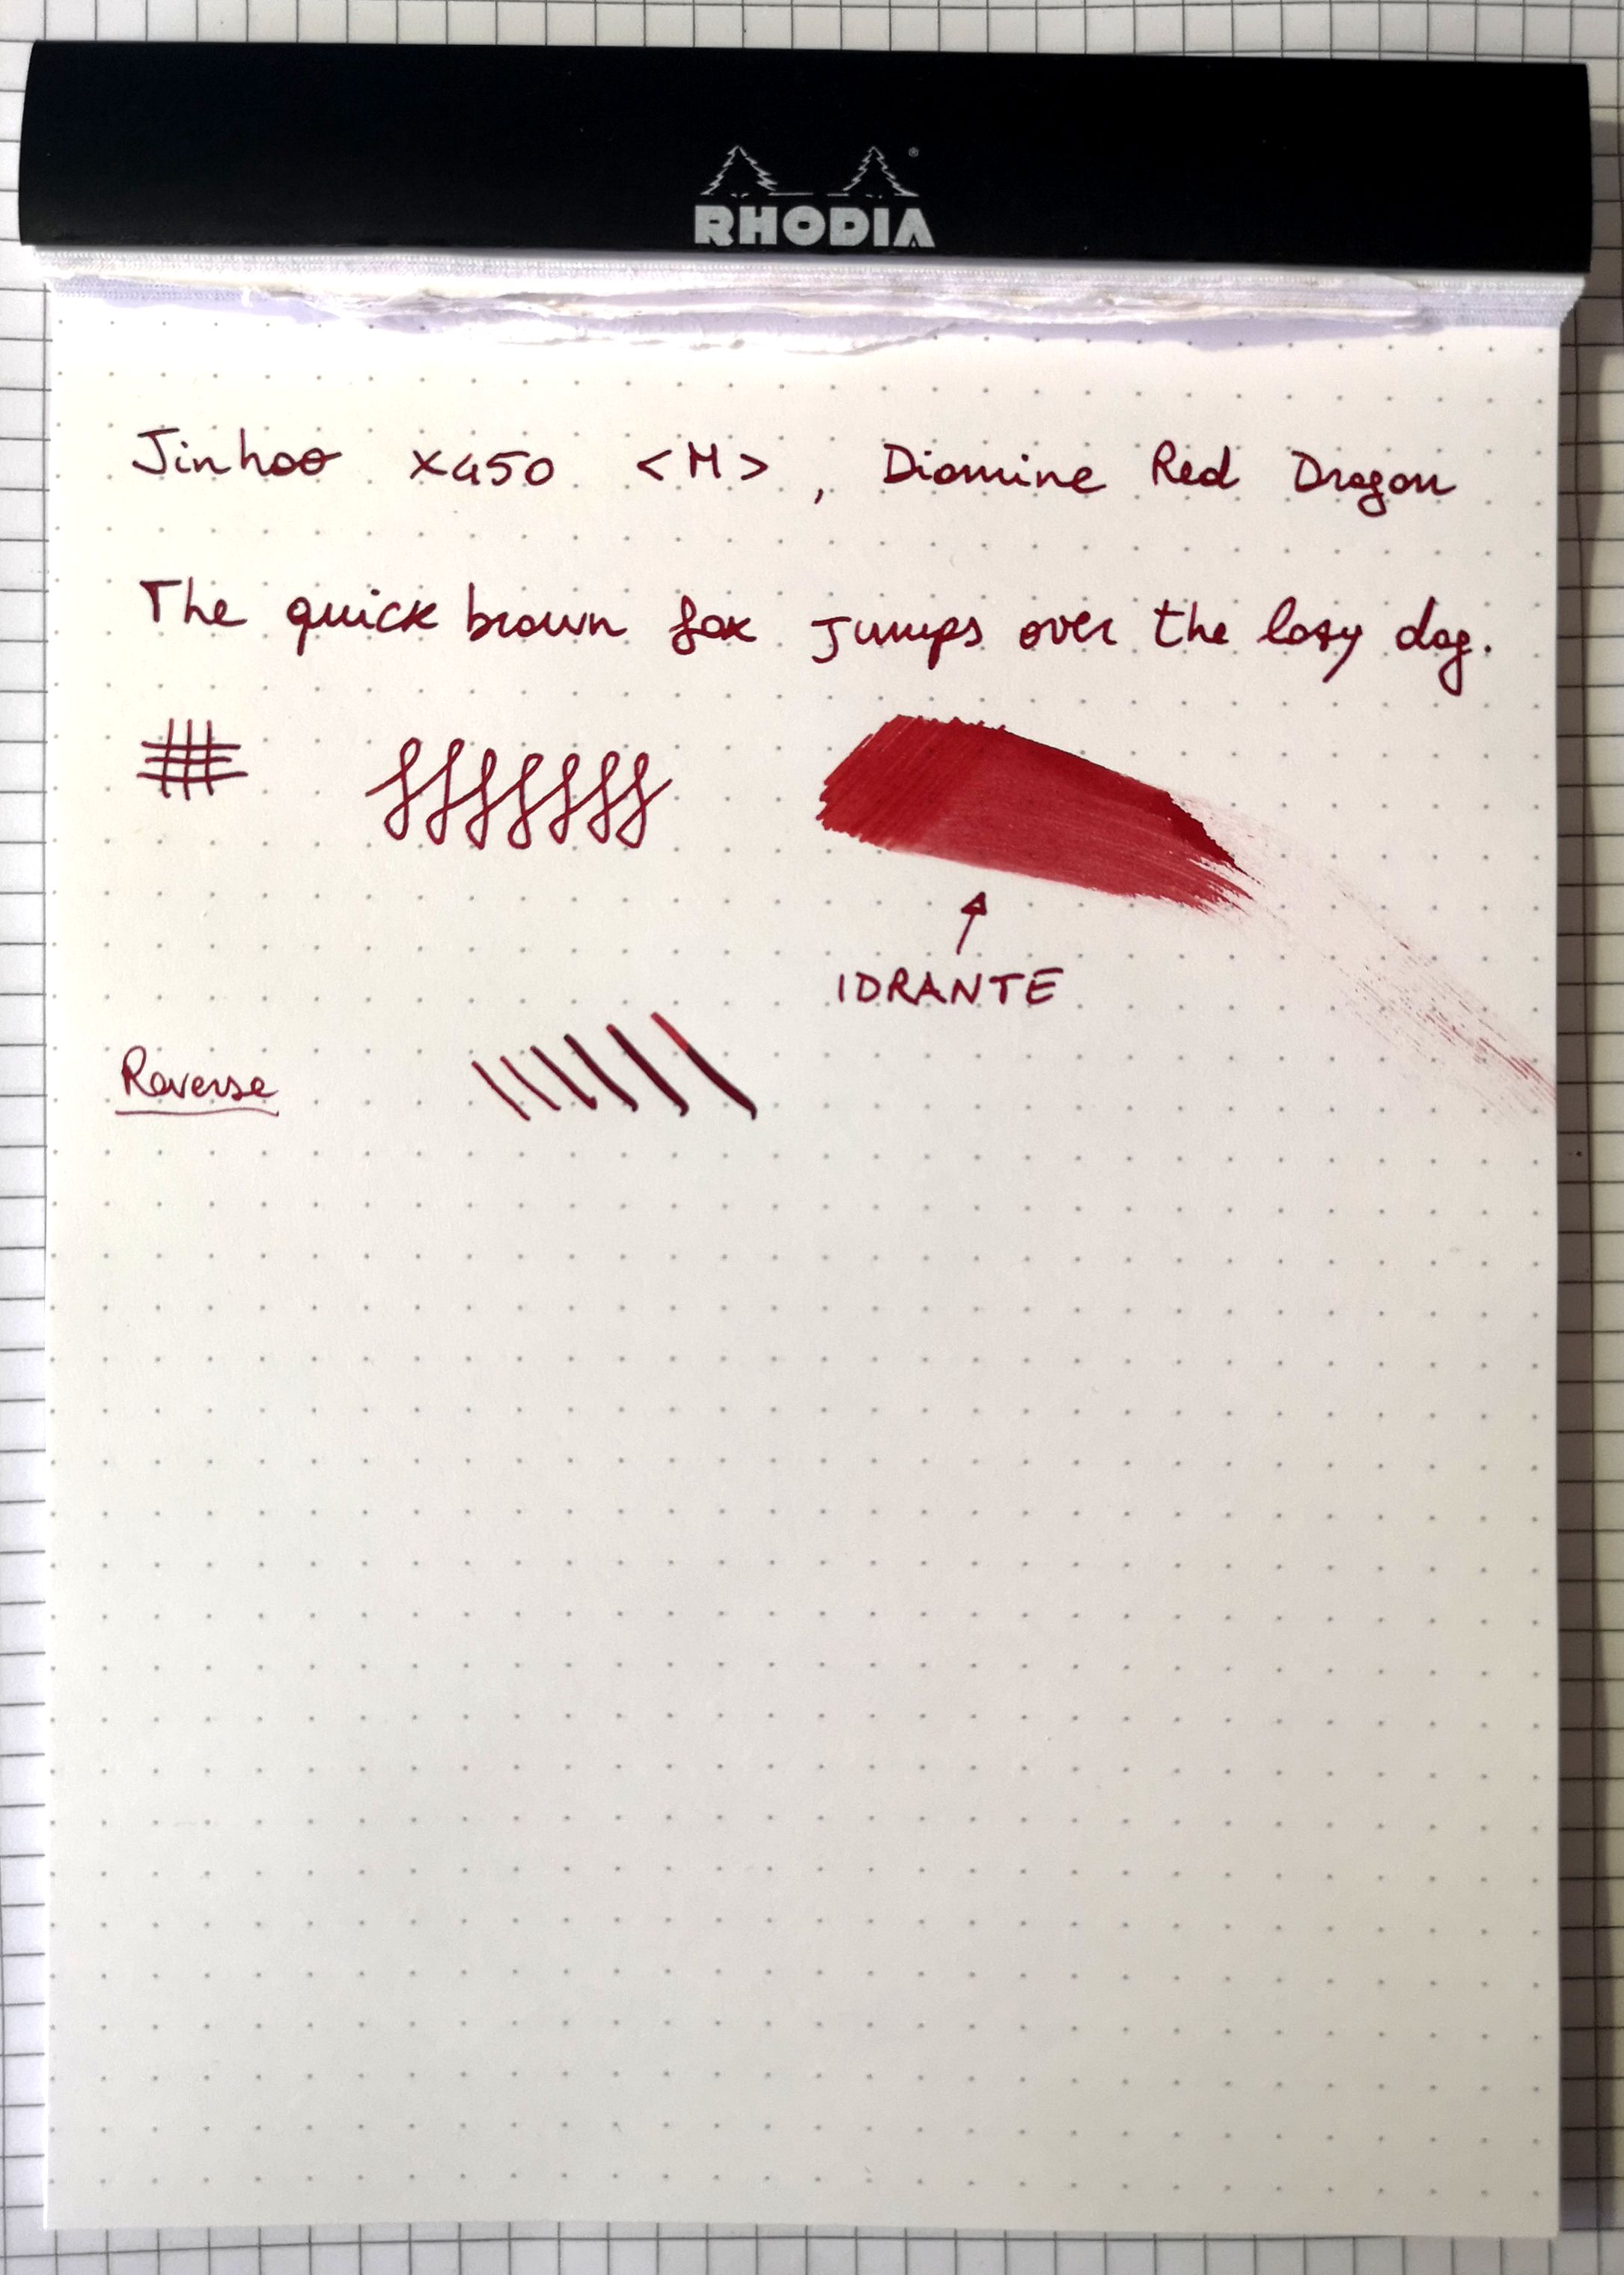 RHODIA
Jinhao x450 <M>, Diamine Red Dragon
The quick brown fox jumps over the lazy dog.
IDRANTE
Reverse